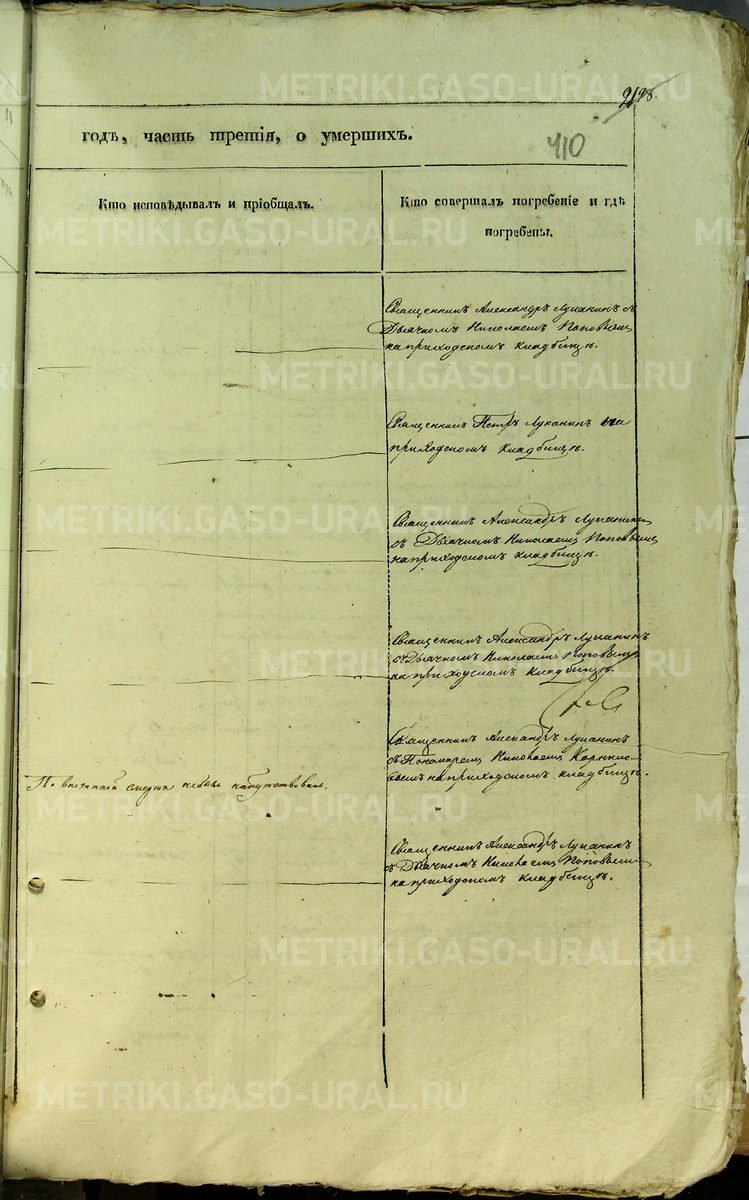 98
410
годъ, часть третія, о умершихъ.
Кто исповѣдывалъ и пріобщалъ.
Кто совершалъ погребеніе и гдѣ
погребены.
Священникъ Александръ Луканинъ съ
Дьячкомъ Николаемъ Поповымъ
на приходскомъ кладбищѣ.
Священникъ Петръ Луканинъ на
приходскомъ кладбищѣ.
Священникъ Александръ Луканинъ
съ Дьячкомъ Николаемъ Поповымъ
на приходскомъ кладбищѣ.
Священникъ Александръ Луканинъ
съ Дьячкомъ Николаемъ Поповымъ
на приходскомъ кладбищѣ.
Священникъ Александръ Луканинъ
съ Пономаремъ Николаемъ Корнило-
вымъ на приходскомъ кладбищѣ.
По внезапной смерти небылъ напутствованъ.
Священникъ Александръ Луканинъ
съ Дьячкомъ Николаемъ Поповымъ
на приходскомъ кладбищѣ.
METRIKI.GASO-URAL.RU